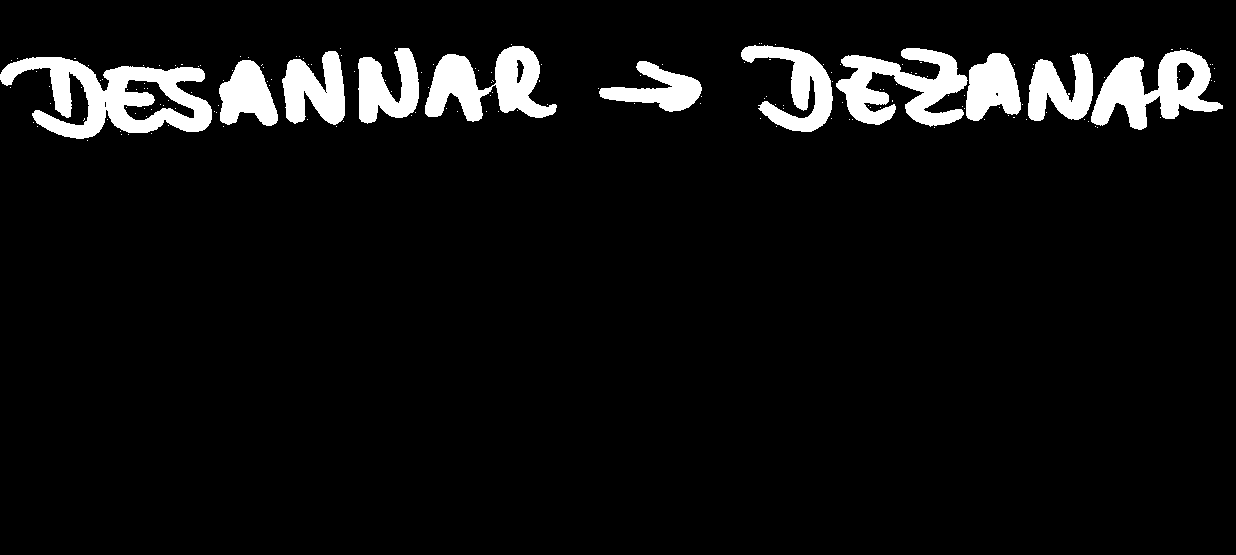 DESANNAR → DEZANAR